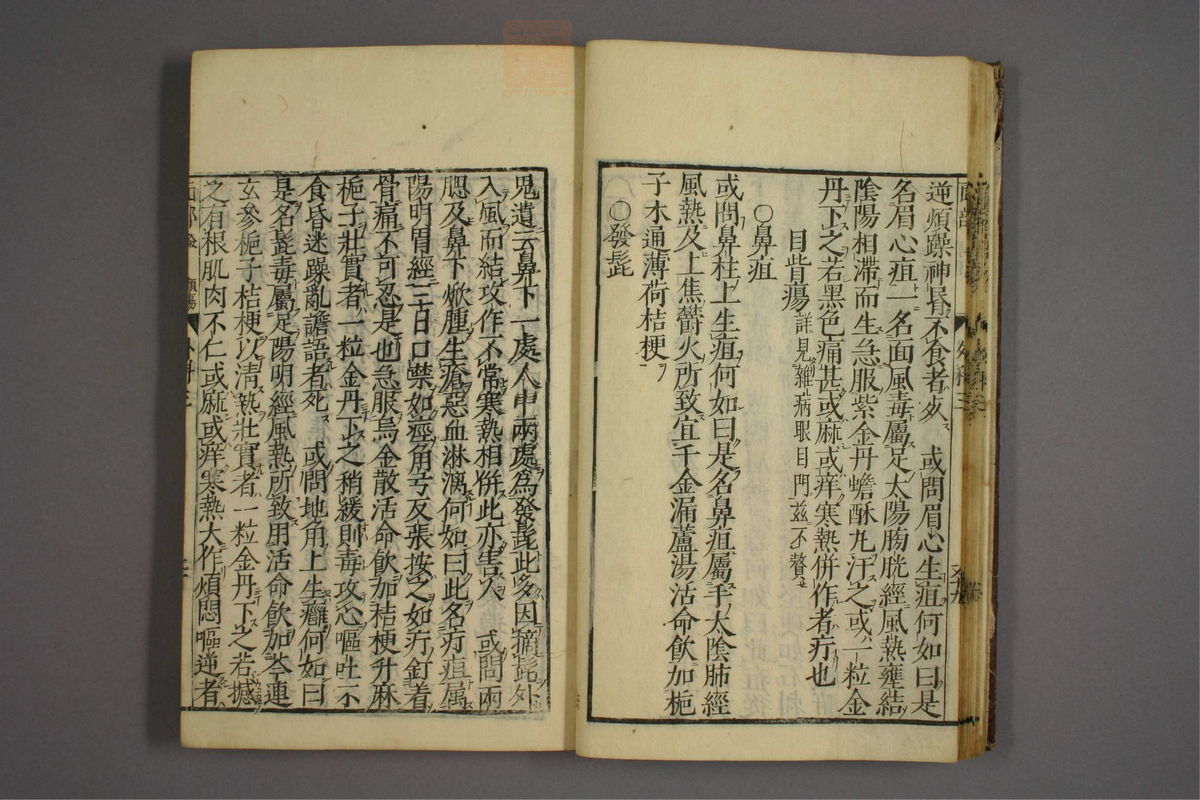 逆煩躁神昏不食者死　或問眉心生疽何如曰是
名眉心疽一名面風毒屬足太陽膀胱經風熱壅結
陰陽相滯而生急服紫金丹蟾酥丸汗之或一粒金
丹下之若黑色痛甚或麻或痒寒熱併作者疔也
目眥瘍詳見雜病眼目門茲不贅
○鼻疽
或問鼻柱上生疽何如曰是名鼻疽屬手太陰肺經
風熱及上焦鬱火所致宜千金漏蘆湯活命飲加梔
子木通薄荷桔梗
○發髭
鬼遺云鼻下一處人中兩處為發髭此多因摘髭外
入風而結攻作不常寒熱相併此亦害人　或問兩
腮及鼻下焮腫生瘡惡血淋漓何如曰此名疔疽屬
陽明胃經二三日口禁如痙角弓反張按之如疔釘着
骨痛不可忍是也急服烏金散活命飲加桔梗升麻
梔子壯實者一粒金丹下之稍緩則毒攻心嘔吐不
食昏迷躁亂譫語者死　或問地角上生癰何如曰
是名髭毒屬足陽明經風熱所致用活命飲加芩連
玄參梔子桔梗以清熱壯實者一粒金丹下之若撼
之有根肌肉不仁或麻或痒寒熱大作煩悶嘔逆者